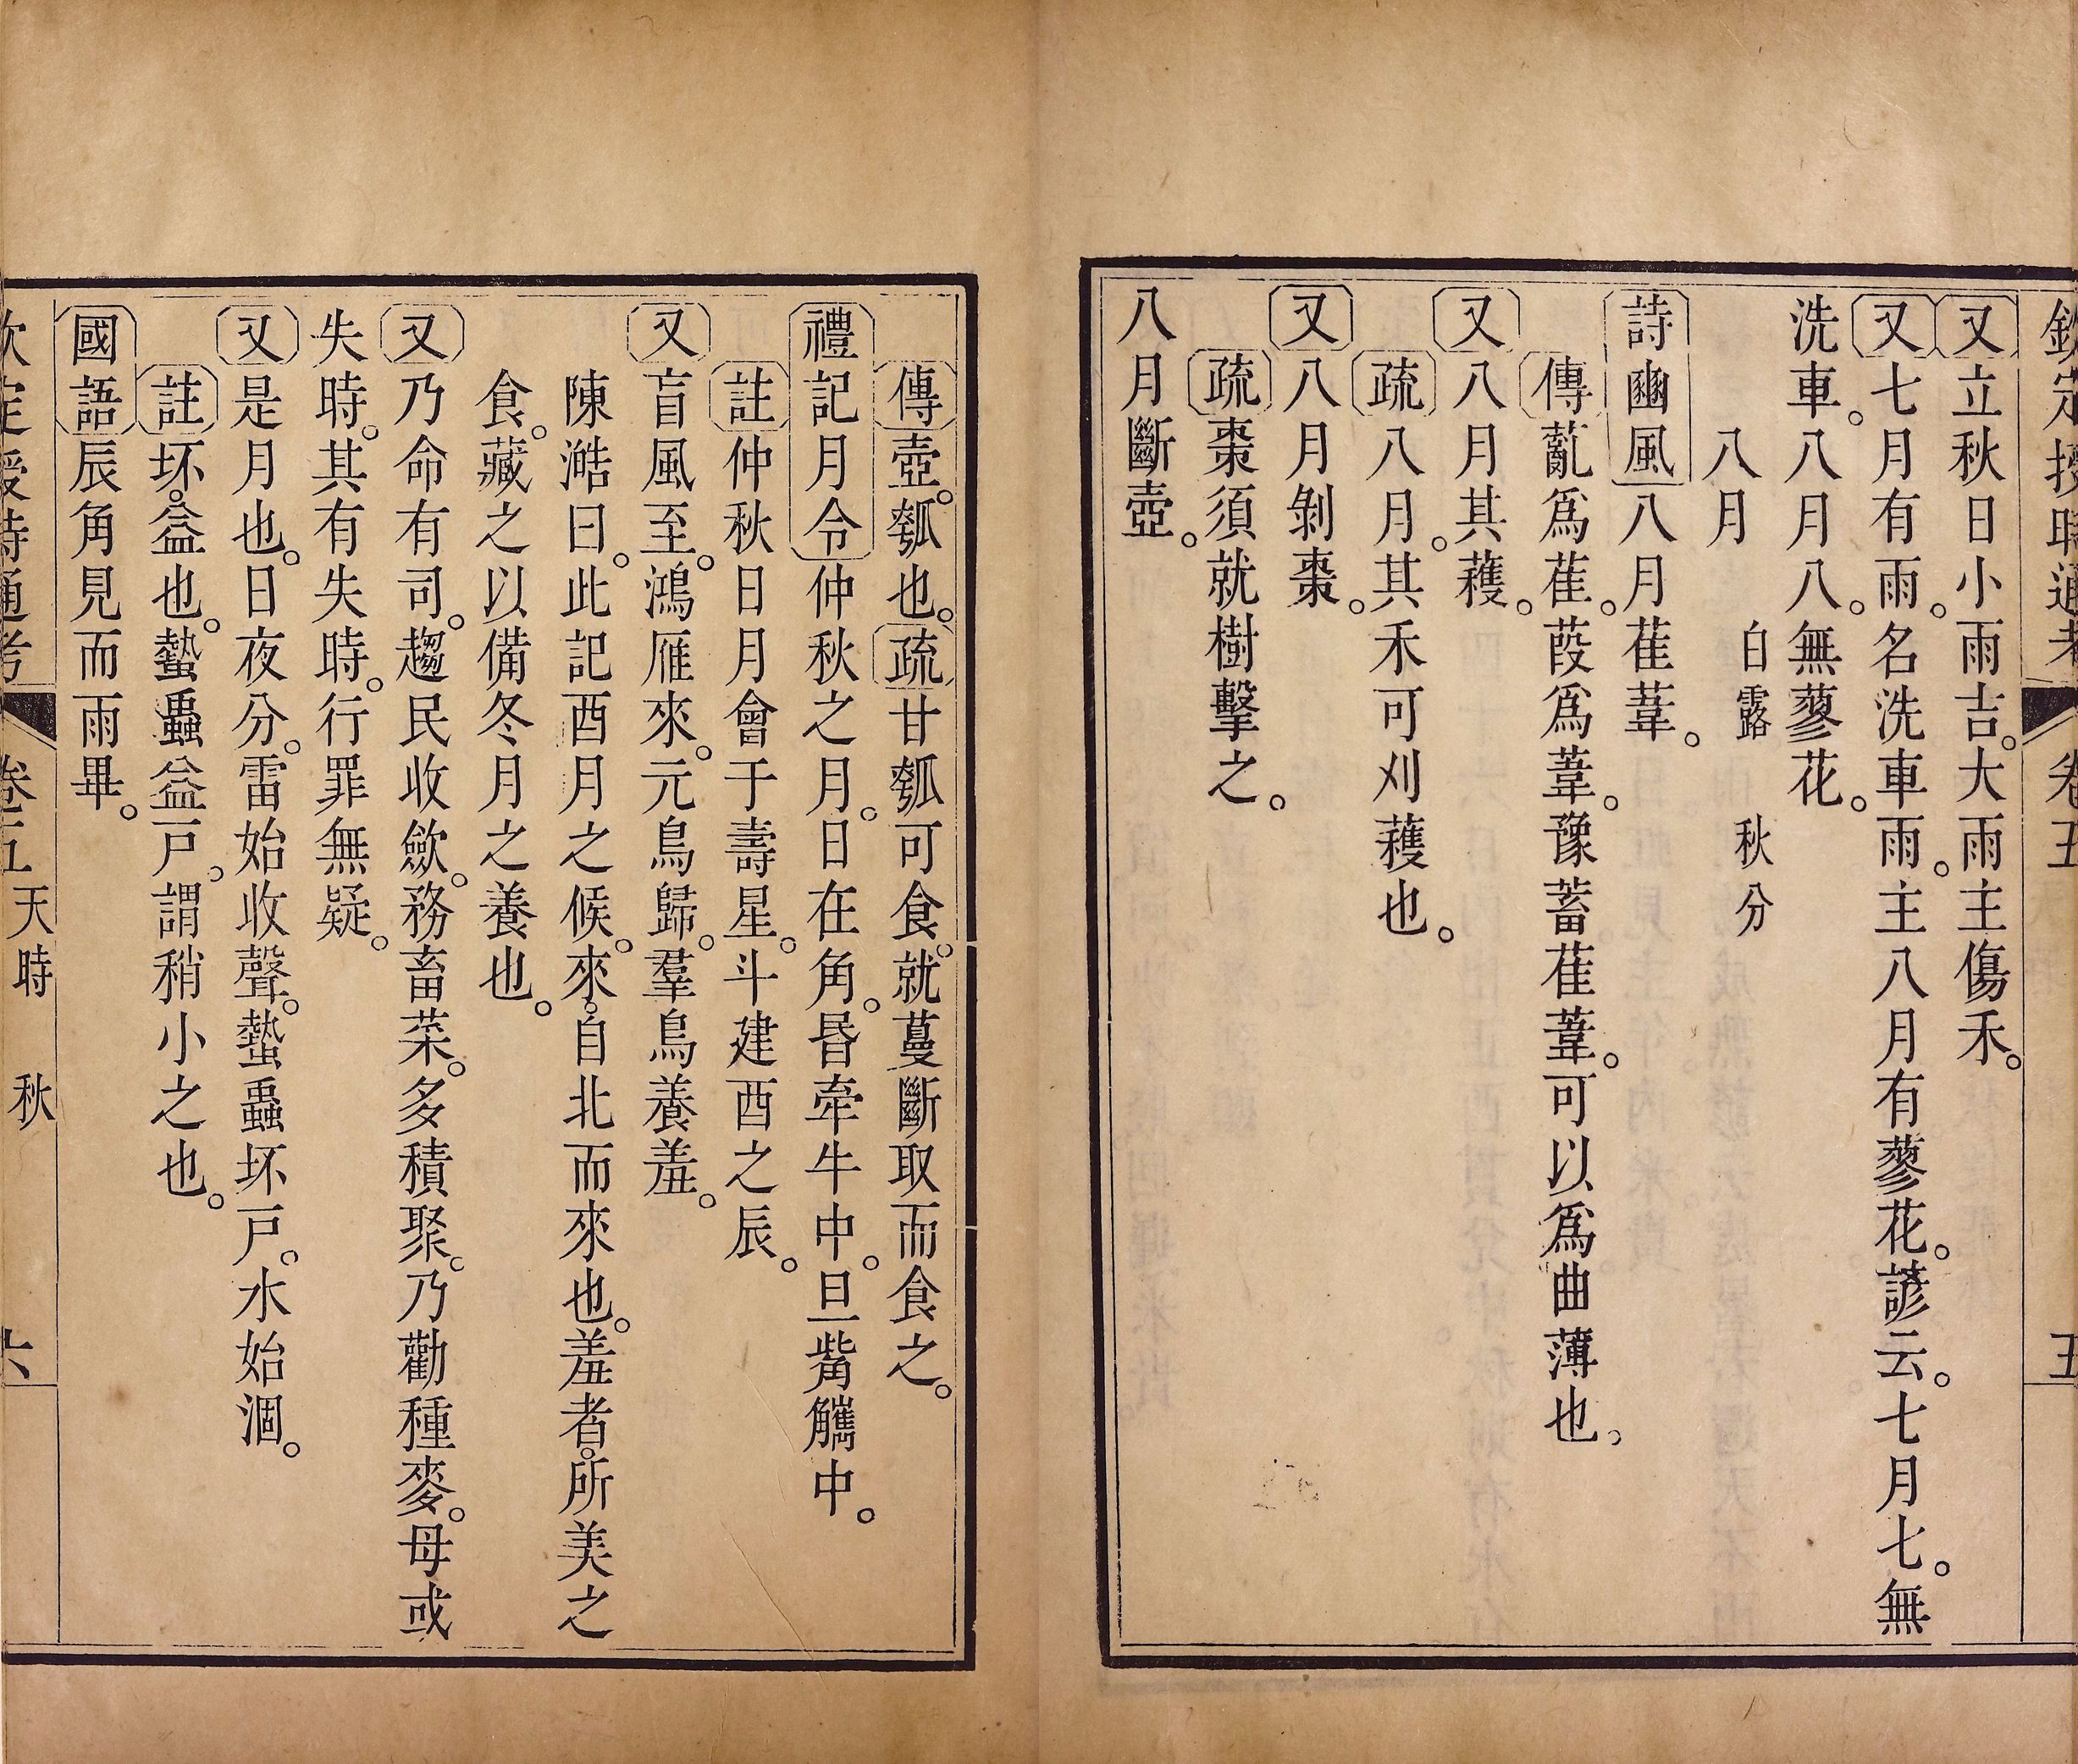 欽定授時通考 卷五 五
又立秋日小雨吉。大雨主傷禾。
又七月有雨。名洗車雨。主八月有蓼花。諺云。七月七。無
洗車。八月八。無蓼花。
八月 白露 秋分
詩豳風八月萑葦。
傳薍爲萑。葭爲葦。豫蓄萑葦。可以爲曲薄也。
又八月其穫。
疏八月。其禾可刈穫也。
又八月剝棗。
疏棗須就樹擊之。
八月斷壺。
傳壺。瓠也。疏甘瓠可食。就蔓斷取而食之。
禮記月令仲秋之月。日在角。昏牽牛中。旦觜觿中。
註仲秋日月會于壽星。斗建酉之辰。
又盲風至。鴻雁來。元鳥歸。羣鳥養羞。
陳澔曰。此記酉月之候。來。自北而來也。羞者。所美之
食。藏之以備冬月之養也。
又乃命有司。趨民收斂。務畜菜。多積聚。乃勸種麥。母或
失時。其有失時。行罪無疑。
又是月也。日夜分。雷始收聲。蟄蟲坏戸。水始涸。
註坏。益也。蟄蟲益戸。謂稍小之也。
國語辰角見而雨畢。
欽定授時通考 卷五 天時 秋 六